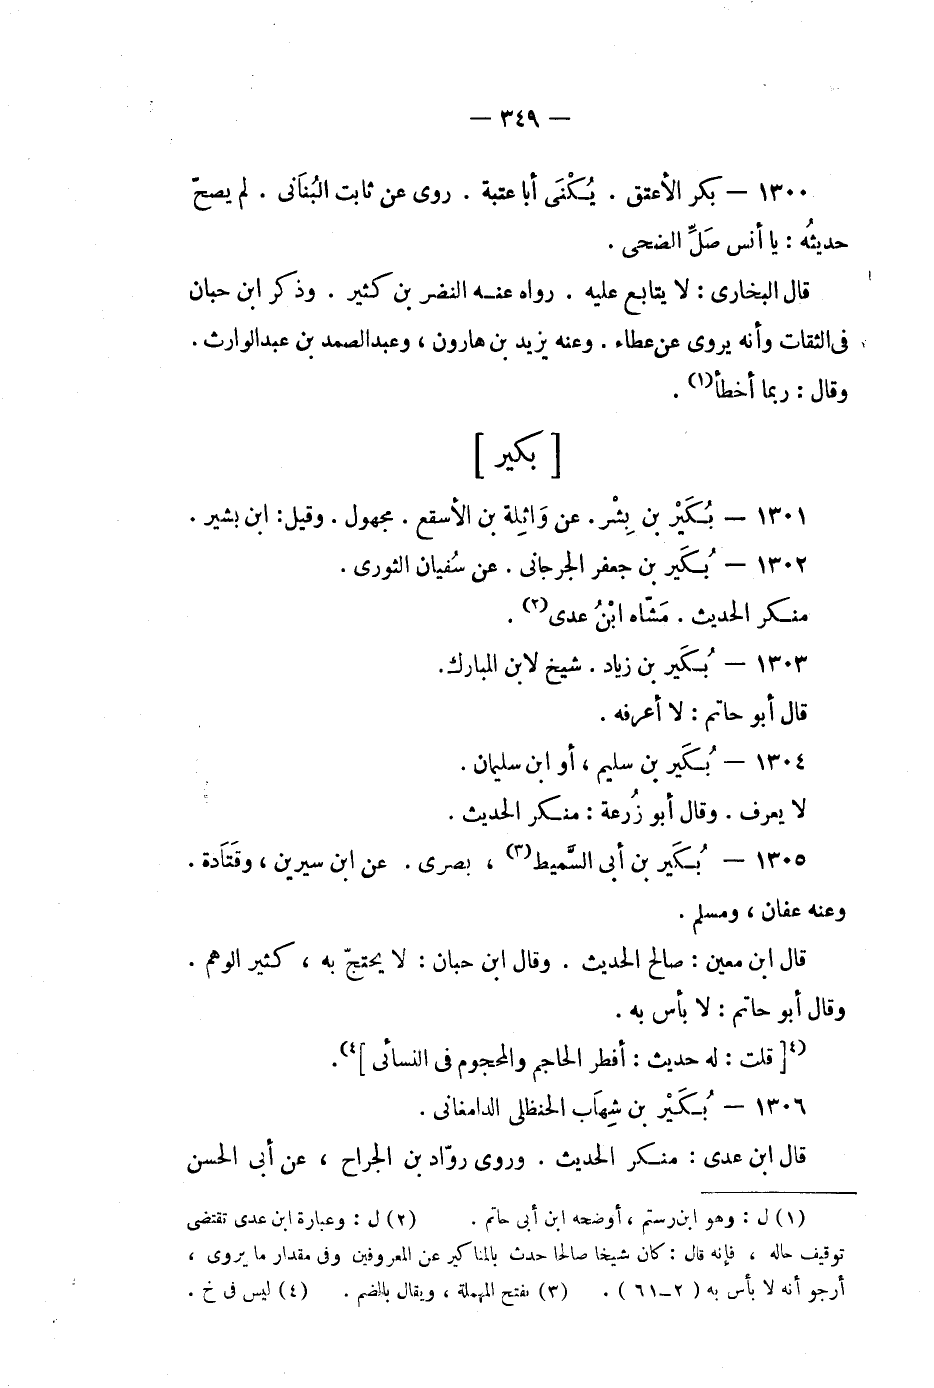 — ٣٤٩ —
١٣٠٠ — بكر الأعتق . يُكْنَى أبا عتبة . روى عن ثابت البُنَانى . لم يصحّ
حديثُه : يا أنس صَلِّ الضحى .
قال البخارى : لا يتابع عليه . رواه عنه النضر بن كثير . وذكر ابن حبان
فى الثقات وأنه يروى عن عطاء . وعنه يزيد بن هارون ، وعبد الصمد بن عبد الوارث .
وقال : ربما أخطأ(١) .
[ بكير ]
١٣٠١ — بُكَيْر بن بِشْر . عن وَاثِلة بن الأسقع . مجهول . وقيل : ابن بشير .
١٣٠٢ — بُكَير بن جعفر الجرجانى . عن سُفيان الثورى .
منكر الحديث . مَشّاه ابْنُ عدى(٢) .
١٣٠٣ — بُكَير بن زياد . شيخ لابن المبارك .
قال أبو حاتم : لا أعرفه .
١٣٠٤ — بُكَير بن سليم ، أو ابن سليمان .
لا يعرف . وقال أبو زُرعة : منكر الحديث .
١٣٠٥ — بُكَير بن أبى السَّميط(٣) ، بصرى . عن ابن سيرين ، وقَتَادة .
وعنه عفان ، ومسلم .
قال ابن معين : صالح الحديث . وقال ابن حبان : لا يحتجّ به ، كثير الوهم .
وقال أبو حاتم : لا بأس به .
(٤[ قلت : له حديث : أفطر الحاجم والمحجوم فى النسائى ]٤) .
١٣٠٦ — بُكَيْر بن شِهَاب الحنظلى الدامغانى .
قال ابن عدى : منكر الحديث . وروى روّاد بن الجراح ، عن أبى الحسن
(١) ل : وهو ابن رستم ، أوضحه ابن أبى حاتم . (٢) ل : وعبارة ابن عدى تقتضى
توقيف حاله ، فإنه قال : كان شيخا صالحا حدث بالمناكير عن المعروفين وفى مقدار ما يروى ،
أرجو أنه لا بأس به ( ٢ـ٦١ ) . (٣) بفتح المهملة ، ويقال بالضم . (٤) ليس فى خ .